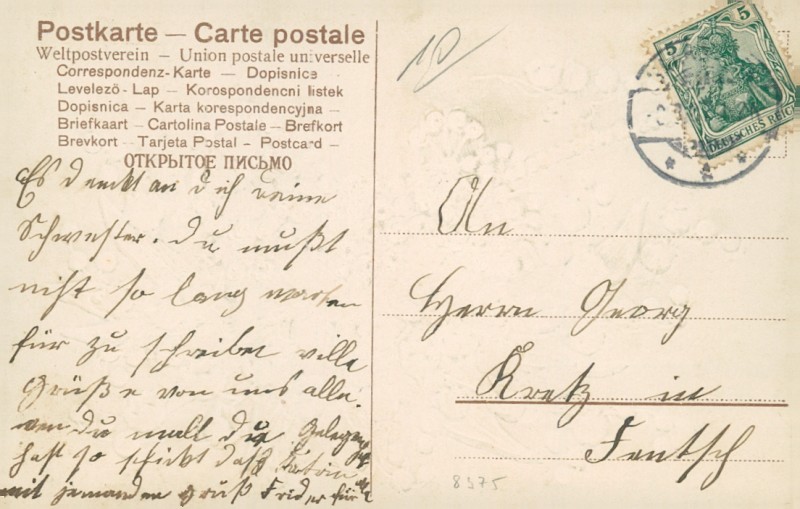 Postkarte — Carte postale
Weltpostverein — Union postale universelle
Correspondenz-Karte — Dopisnice
Levelező-Lap — Korospondencni listek
Dopisnica — Karta korespondencyjna —
Briefkaart — Cartolina Postale — Brefkort
Brevkort — Tarjeta Postal — Postcard —
ОТКРЫТОЕ ПИСЬМО
Es denckt an dich deine
Schwester. du mußt
niht so lang warten
für zu schreibet ville
Grüße von uns alle.
wen du mall du Gelegen
haft so schickt daß
mit jemanden Gruß
5 5
DEUTSCHES REICH
An
Herrn Georg
Kretz in
Fentsch
8375